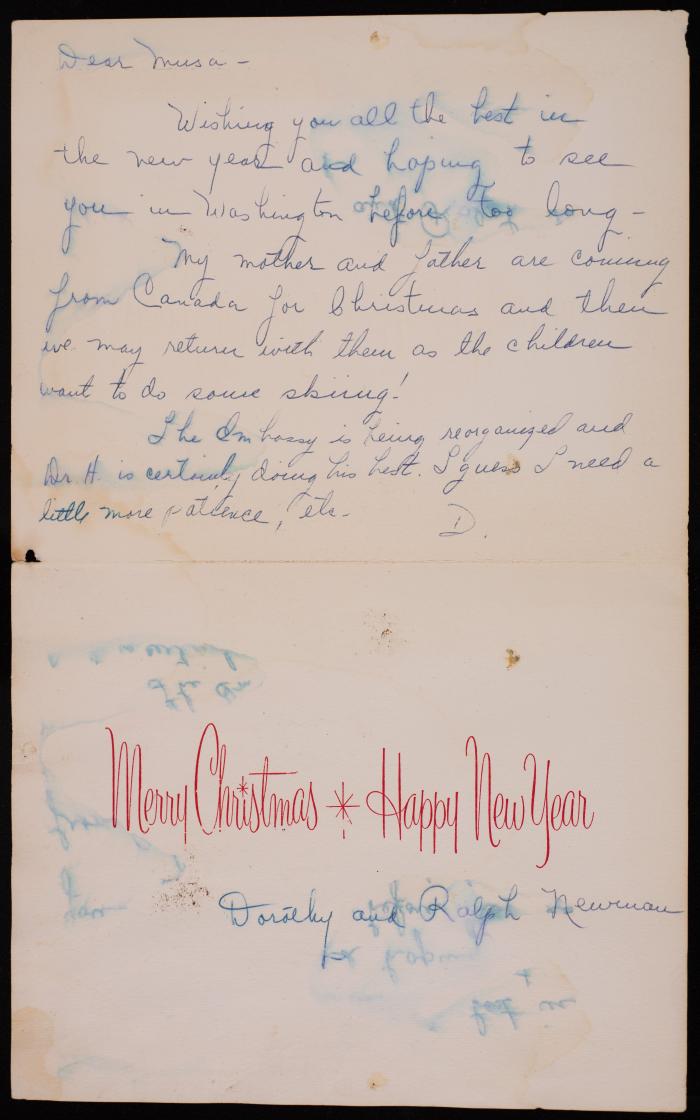 Dear Musa -
Wishing you all the best in
the new year and hoping to see
you in Washington before too long -
My mother and father are coming
from Canada for Christmas and then
we may return with them as the children
want to do some skiing!
The Embassy is being reorganized and
Dr. H. is certainly doing his best. I guess I need a
little more patience, etc.
D.
Merry Christmas * Happy New Year
Dorothy and Ralph Newman